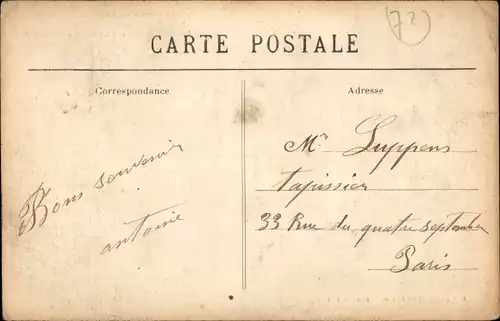 72
CARTE POSTALE
Correspondance
Adresse
Bons souvenir
antoine
Mr Luppens
tapissier
33 Rue du quatre septembre
Paris